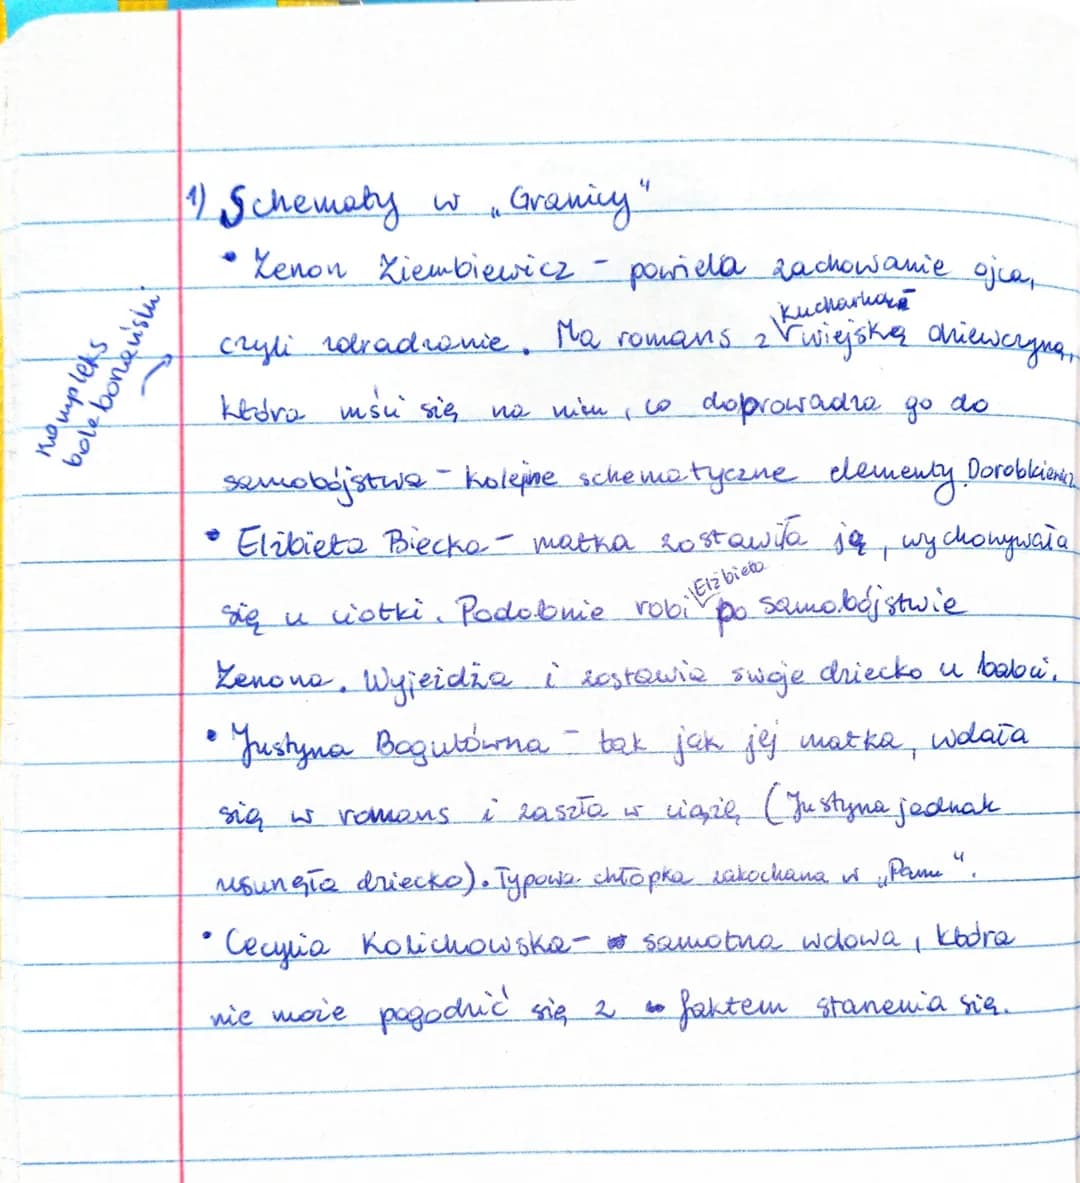 1) Schematy w „Granicy"
• Zenon Ziembiewicz - powiela zachowanie ojca,
czyli zdradzanie. Ma romans z wiejską dziewczyną,
kucharką
która mści się na nim, co doprowadza go do
samobójstwa - kolejne schematyczne elementy. Dorobkiewicz
kompleks
boleborzański
• Elżbieta Biecka - matka zostawiła ją, wychowywała
się u ciotki. Podobnie robi po samobójstwie
Elżbieta
Zenona. Wyjeżdża i zostawia swoje dziecko u babci.
• Justyna Bogutówna - tak jak jej matka, wdała
się w romans i zaszła w ciążę (Justyna jednak
usunęła dziecko). Typowa chłopka zakochana w „Panu".
• Cecylia Kolichowska - samotna wdowa, która
nie może pogodzić się z faktem starzenia się.